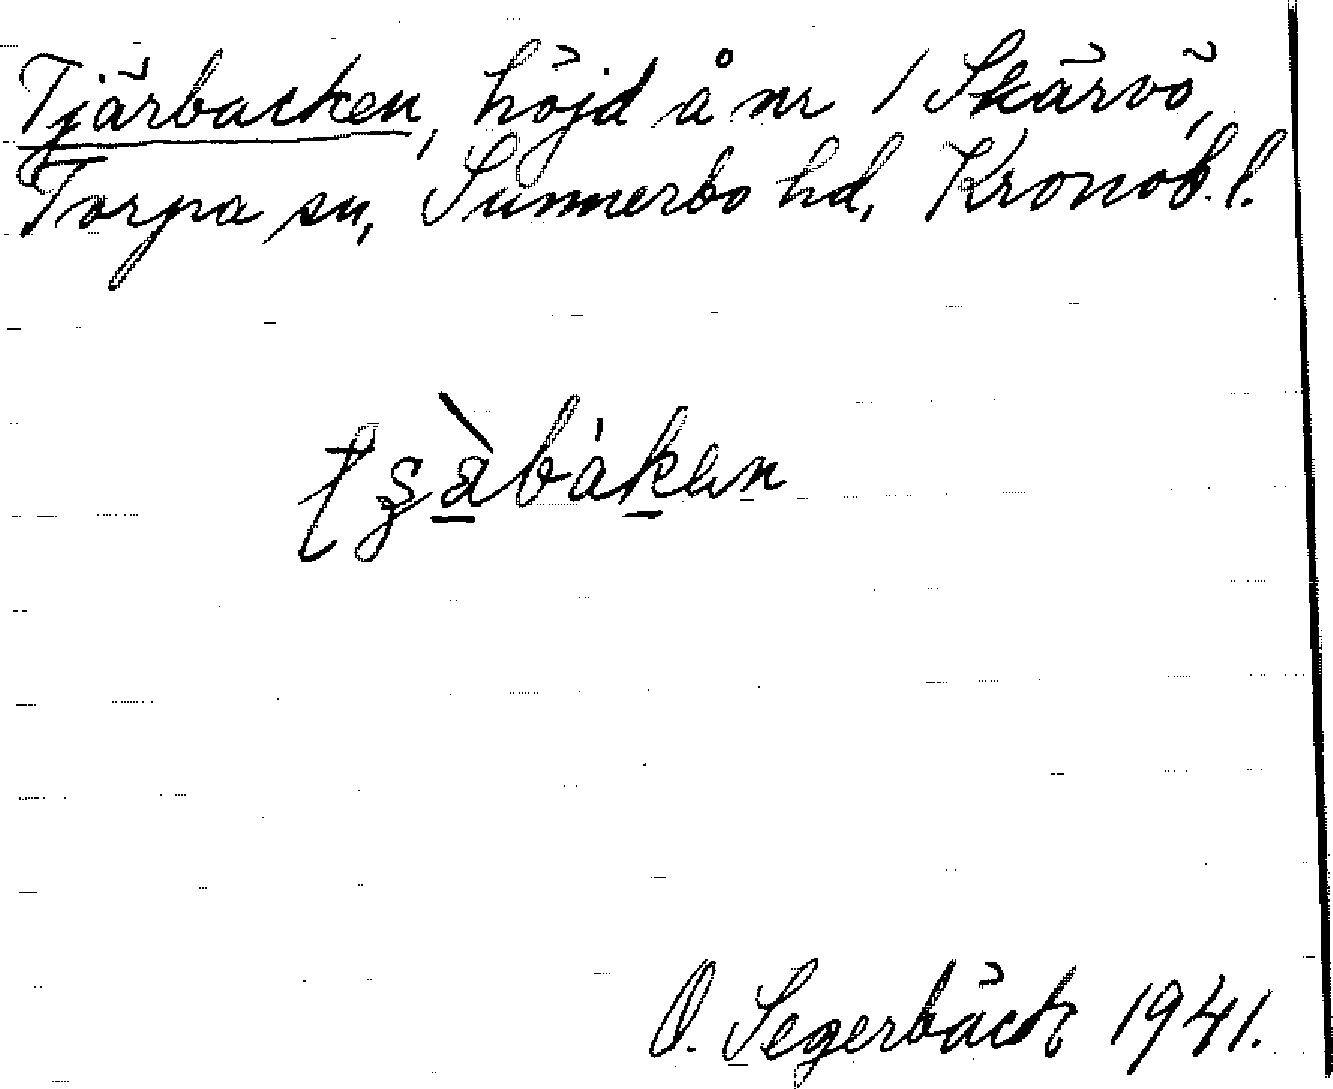 Tjärbacken, höjd å nr 1 Skärvö,
Torpa sn, Sunnerbo hd, Kronob. l.
O. Segerbäck 1941.